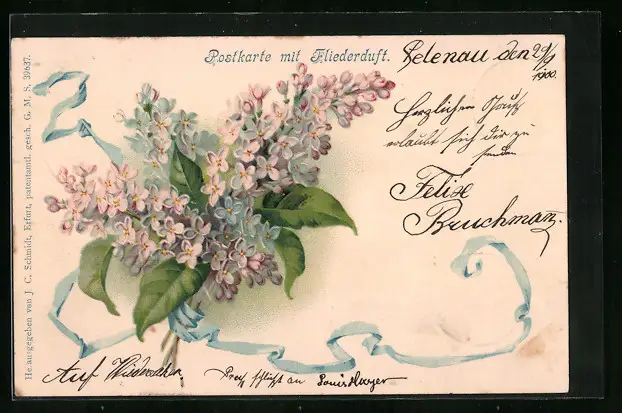 Postkarte mit Fliederduft.
Gelenau den 29/9
1900.
Herzlichen Gruß
erlaubt sich dir zu
senden
Felix
Bruchman
Herausgegeben von J. C. Schmidt, Erfurt, patentamtl. gesch. G. M. S. 39637.
Auf Wiedersehen
schließt an Louis Mayer